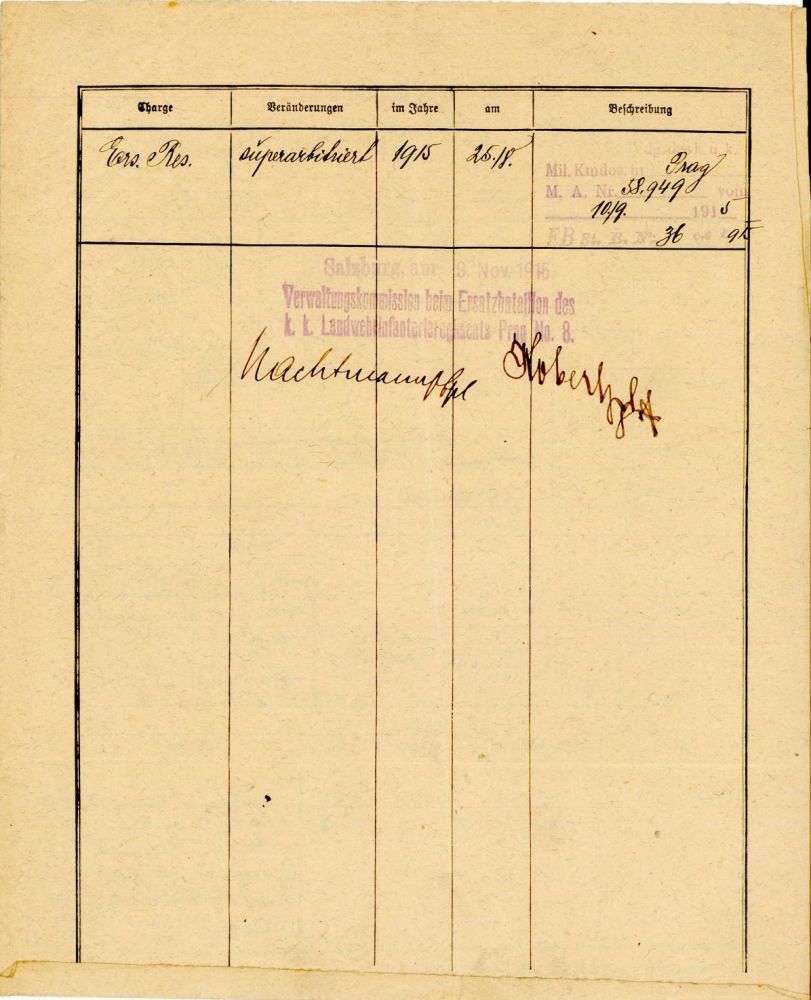 Charge Veränderungen im Jahre am Beschreibung
Ers. Res. superarbitriert 1915 25./8.
k. u. k.
Mil. Kmdos. in Prag
M. A. Nr. 58.949 vom
10/9. 1915
FB St. B. No. 36
Salzburg, am 9. Nov. 1915
Verwaltungskommission beim Ersatzbataillon des
k. k. Landwehrinfanterieregiments Prag No. 8.
Nachtmann